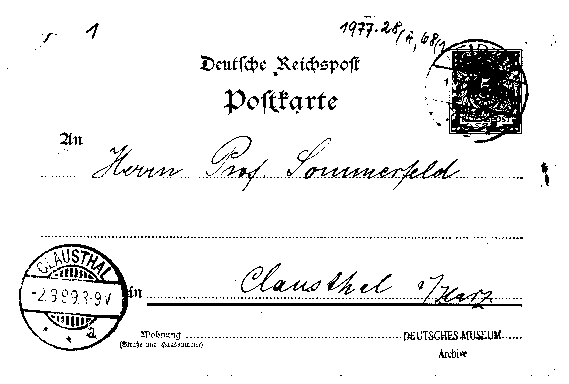 1
1977-28/A,68/1
Deutsche Reichspost
Postkarte
An
Herrn Prof. Sommerfeld
CLAUSTHAL
-2.3.99.8-9V
a
in
Clausthal i/Harz
Wohnung
(Straße und Hausnummer)
DEUTSCHES MUSEUM
Archive